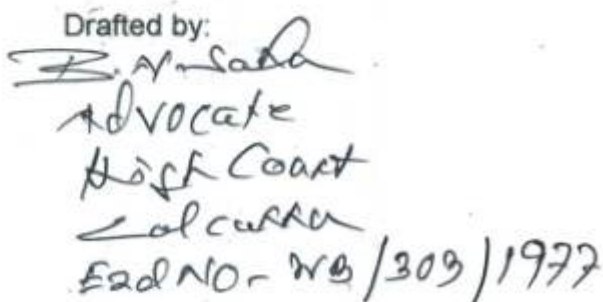 Drafted by:
B. N. Saha
Advocate
High Court
Calcutta
End NO- WB/303/1977